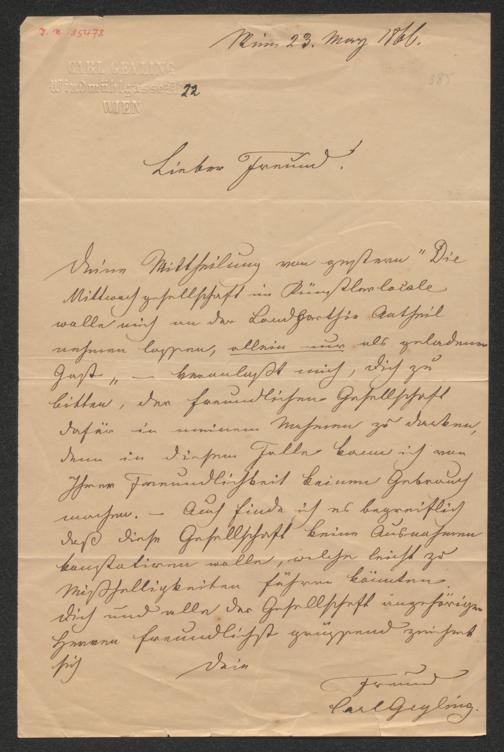 J. N. 35473
Wien 23. May 1866.
385
CARL GEYLING
Windmühlgasse
22
WIEN
Lieber Freund!
Deine Mittheilung von gestern "Die
Mittwochgesellschaft im Künstlerlocale
wolle mich an der Landparthie Antheil
nehmen lassen, allein nur als geladenen
Gast„ — veranlaßt mich, Dich zu
bitten, der freundlichen Gesellschaft
dafür in meinem Nahmen zu danken,
denn in diesem Falle kann ich von
Ihrer Freundlichkeit keinen Gebrauch
machen. — Auch finde ich es begreiflich
daß diese Gesellschaft keine Ausnahmen
konstatiren wolle, welche leicht zu
Mißhelligkeiten führen könnten.
Dich und alle der Gesellschaft angehörigen
Herren freundlichst grüssend zeichnet
sich Dein
Freund
Carl Geyling.